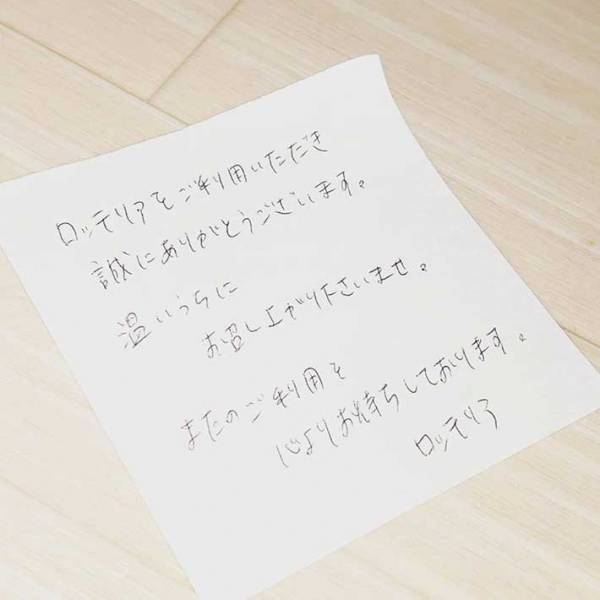 ロッテリアをご利用いただき
誠にありがとうございます。
温いうちに
お召し上がり下さいませ。
またのご利用を
心よりお待ちしております。
ロッテリア